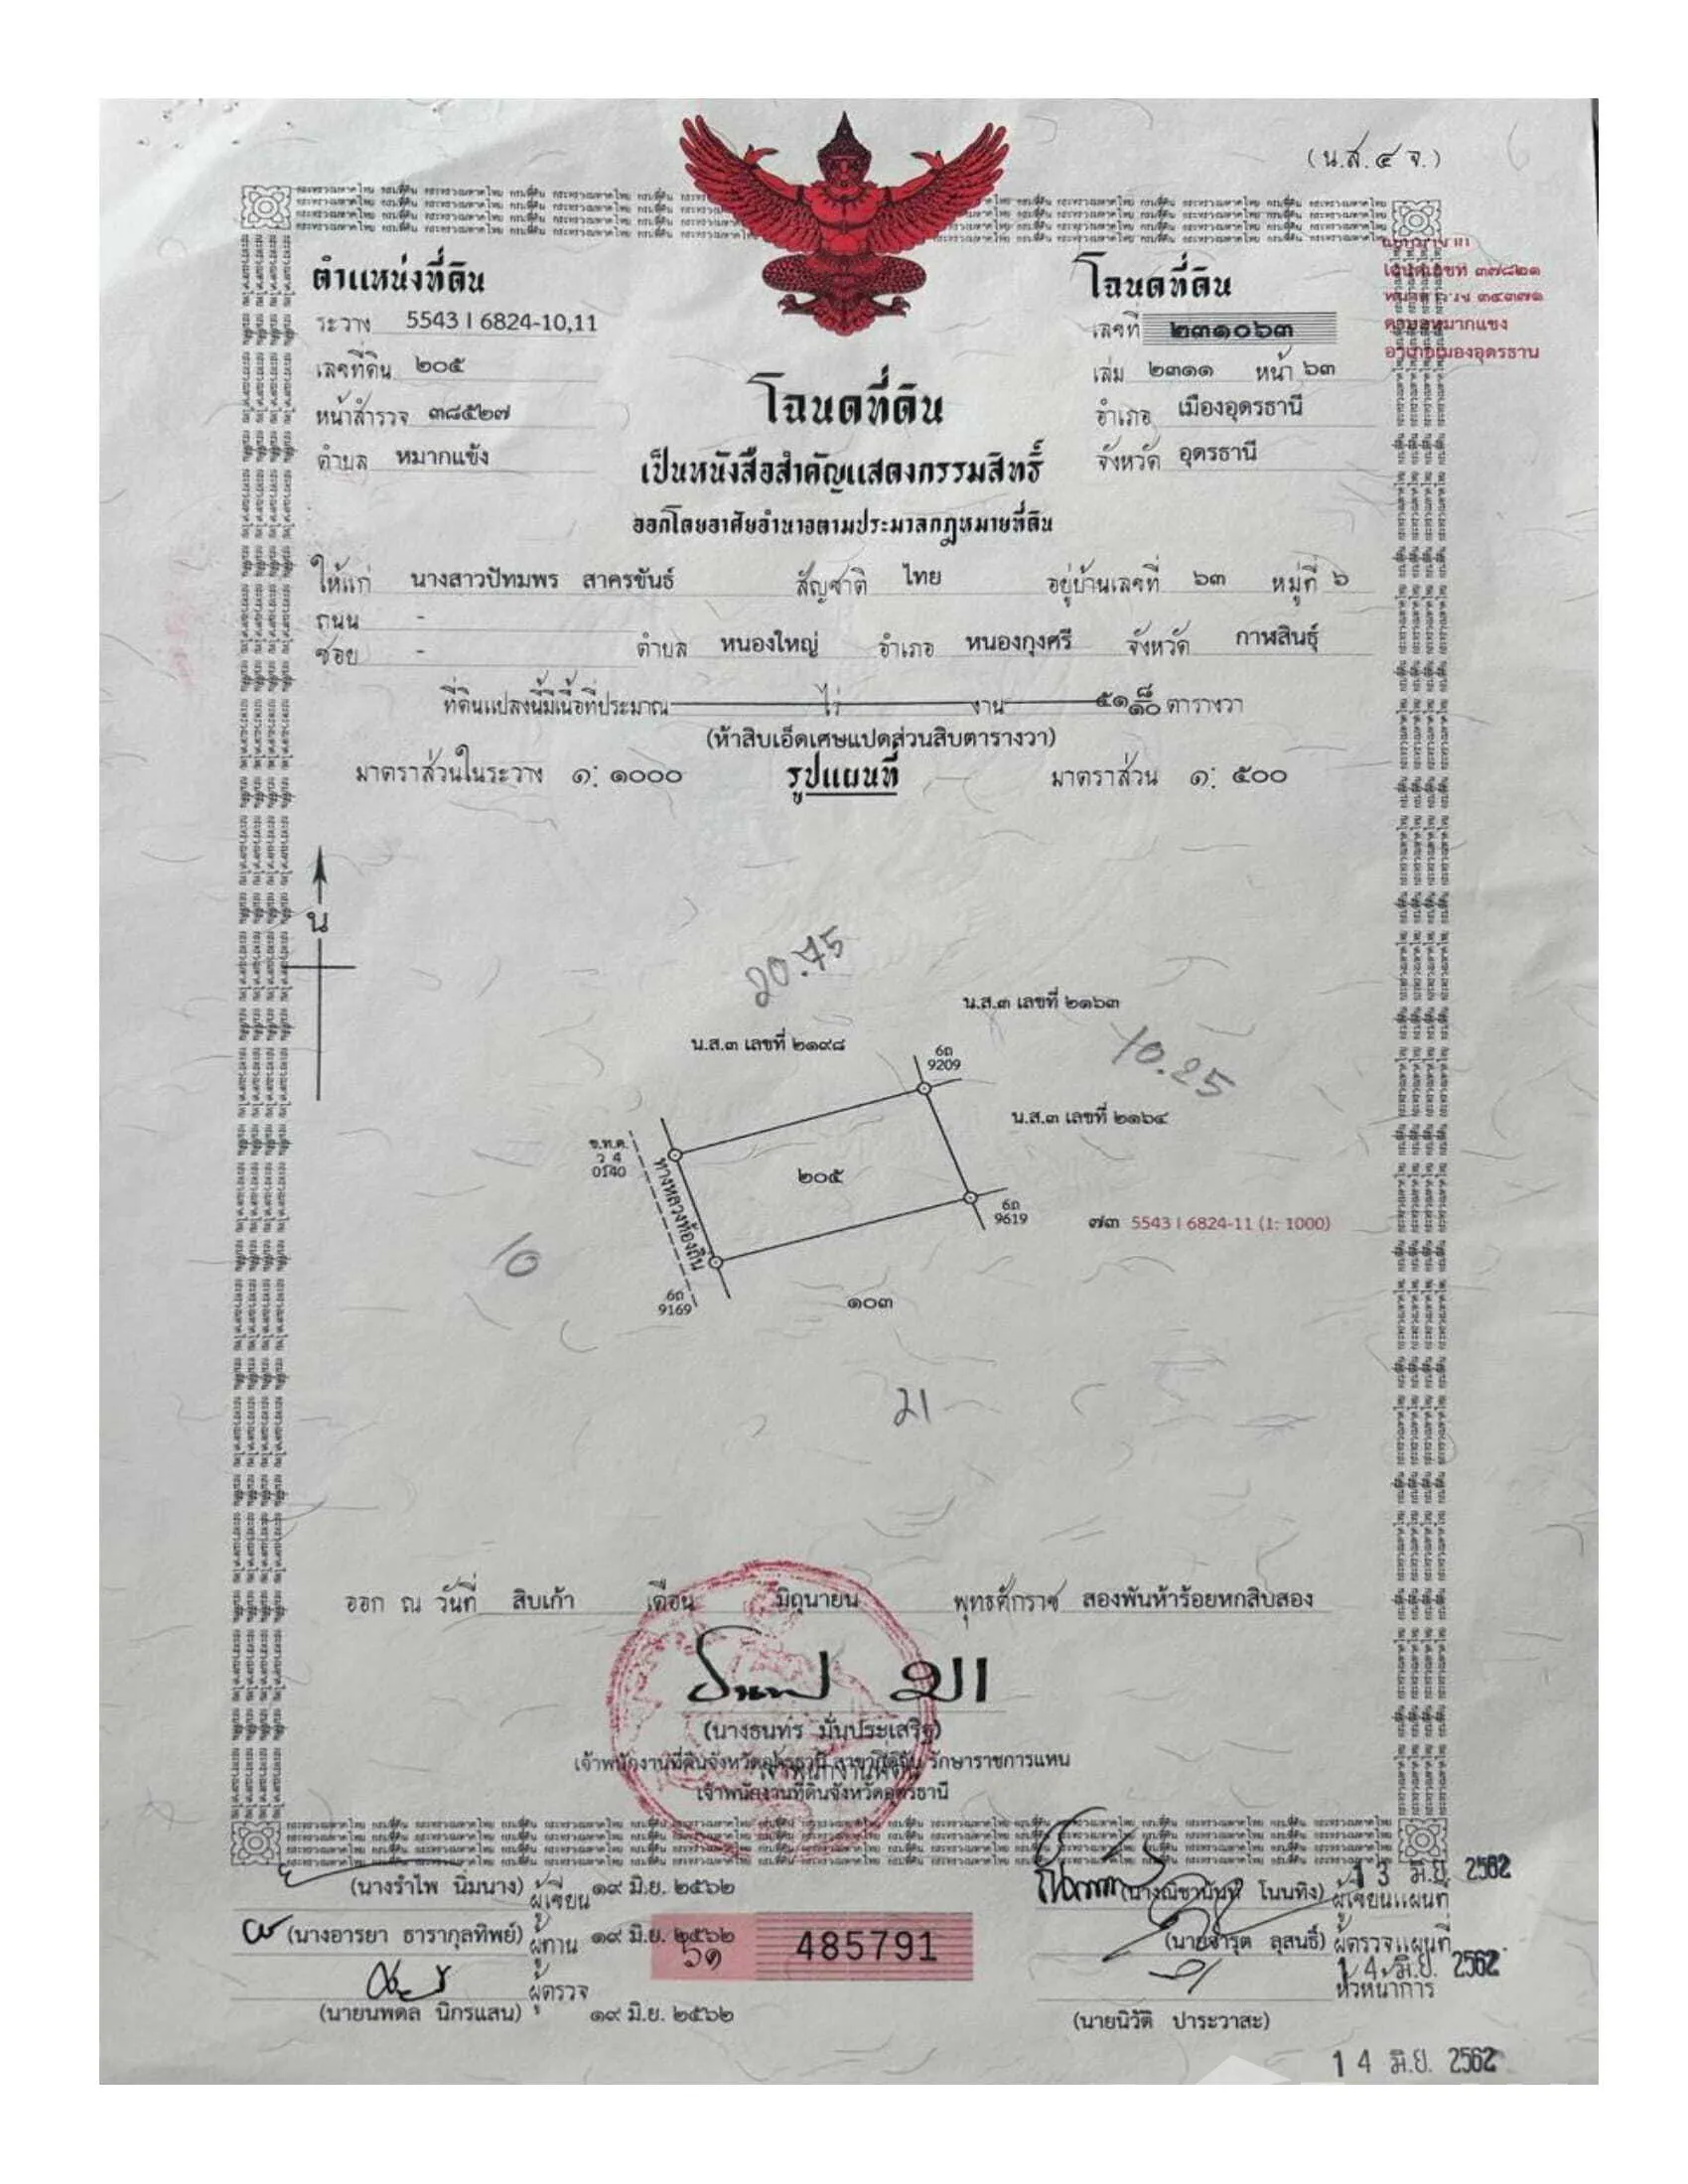 (น.ส.๔ จ.)
ตำแหน่งที่ดิน
ระวาง 5543 I 6824-10,11
เลขที่ดิน ๒๐๕
หน้าสำรวจ ๓๘๕๒๗
ตำบล หมากแข้ง
โฉนดที่ดิน
เลขที่ ๒๓๑๐๖๓
เล่ม ๒๓๑๑ หน้า ๖๓
อำเภอ เมืองอุดรธานี
จังหวัด อุดรธานี
โฉนดเลขที่ ๓๗๘๒๑
๓๔๓๗๑
ตำบลหมากแขง
อำเภอเมืองอุดรธาน
โฉนดที่ดิน
เป็นหนังสือสำคัญแสดงกรรมสิทธิ์
ออกโดยอาศัยอำนาจตามประมวลกฎหมายที่ดิน
ให้แก่ นางสาวปัทมพร สาครขันธ์ สัญชาติ ไทย อยู่บ้านเลขที่ ๖๓ หมู่ที่ ๖
ถนน -
ซอย - ตำบล หนองใหญ่ อำเภอ หนองกุงศรี จังหวัด กาฬสินธุ์
ที่ดินแปลงนี้มีเนื้อที่ประมาณ ไร่ งาน ๕๑ ๘/๑๐ ตารางวา
(ห้าสิบเอ็ดเศษแปดส่วนสิบตารางวา)
มาตราส่วนในระวาง ๑: ๑๐๐๐ รูปแผนที่ มาตราส่วน ๑: ๕๐๐
น
20.75
น.ส.๓ เลขที่ ๒๑๖๓
น.ส.๓ เลขที่ ๒๑๙๘
10.25
6ถ
9209
น.ส.๓ เลขที่ ๒๑๖๔
ข.ท.ค.
ว 4
0140
ทางหลวงท้องถิ่น
๒๐๕
6ถ
9619
๗๓ 5543 I 6824-11 (1: 1000)
10
6ถ
9169
๑๐๓
21
ออก ณ วันที่ สิบเก้า เดือน มิถุนายน พุทธศักราช สองพันห้าร้อยหกสิบสอง
(นางธนทร มั่นประเสริฐ)
เจ้าพนักงานที่ดินจังหวัดอุดรธานี สาขากุดจับ รักษาราชการแทน
เจ้าพนักงานที่ดิน
เจ้าพนักงานที่ดินจังหวัดอุดรธานี
(นางรำไพ นิ่มนาง) ผู้เขียน ๑๙ มิ.ย. ๒๕๖๒
(นางอารยา ธารากุลทิพย์) ผู้ทาน ๑๙ มิ.ย. ๒๕๖๒
ผู้ตรวจ
(นายนพดล นิกรแสน) ๑๙ มิ.ย. ๒๕๖๒
485791
13 มิ.ย. 2562
(นางณิชานันท์ โนนทิง) ผู้เขียนแผนที่
(นายจำรุต ลุสนธิ์) ผู้ตรวจแผนที่
14 มิ.ย. 2562
หัวหน้าการ
(นายนิวัติ ปาระวาสะ)
14 มิ.ย. 2562